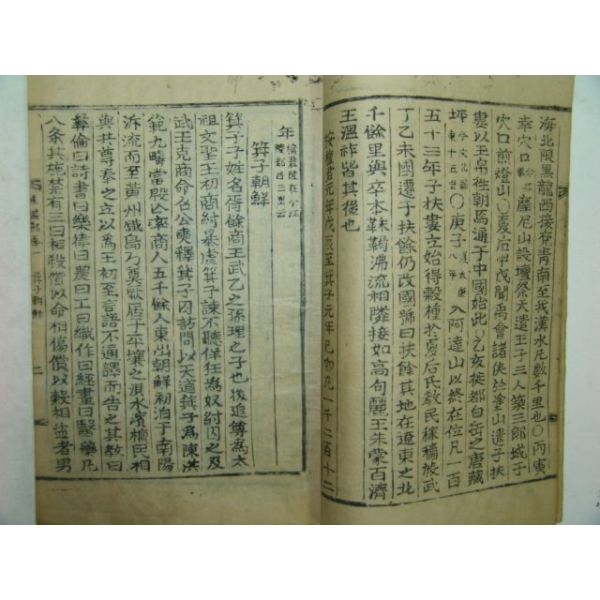 海北順黑龍西接在青南至我漢水凡數千里也〇丙寅
幸穴口
薩尼山設壇祭天遣王子三人築三郎城于
穴口前燈山〇夏后甲戌聞禹會諸侯於塗山遣子扶
婁以玉帛往朝焉通于中國始此〇乙亥徙都白岳之唐藏
坪
〇庚子
入阿達山以終在位凡一百
五十三年子扶婁立始得穀種於夏后氏敎民稼穡被武
丁乙未國遷于扶餘仍改國號曰扶餘其地在遼東之北
千餘里與卒本靺鞨沸流相隣接如高句麗王朱蒙百濟
王溫祚皆其後也
按檀君元年戊辰至箕子元年己卯凡一千二百十二
年
箕子朝鮮
箕子子姓名胥餘商王武乙之孫理之子也後追尊爲太
祖文聖王初商紂暴虐箕子諫不聽佯狂爲奴紂囚之及
武王克商命召公奭釋箕子囚訪問以天道箕子爲陳洪
範九疇當殷亡率商人五千餘人東出朝鮮初泊于南陽
泝流而至黃州鐵島乃奠厥居于平壤之浿水濱檀民相
與共尊奉之立以爲王初至言語不通譯而告之其敎曰
彝倫曰詩書曰樂律曰農曰工曰織作曰經畫曰醫藥凡
八条其施禁有三曰相殺償以命相傷償以穀相盜者男